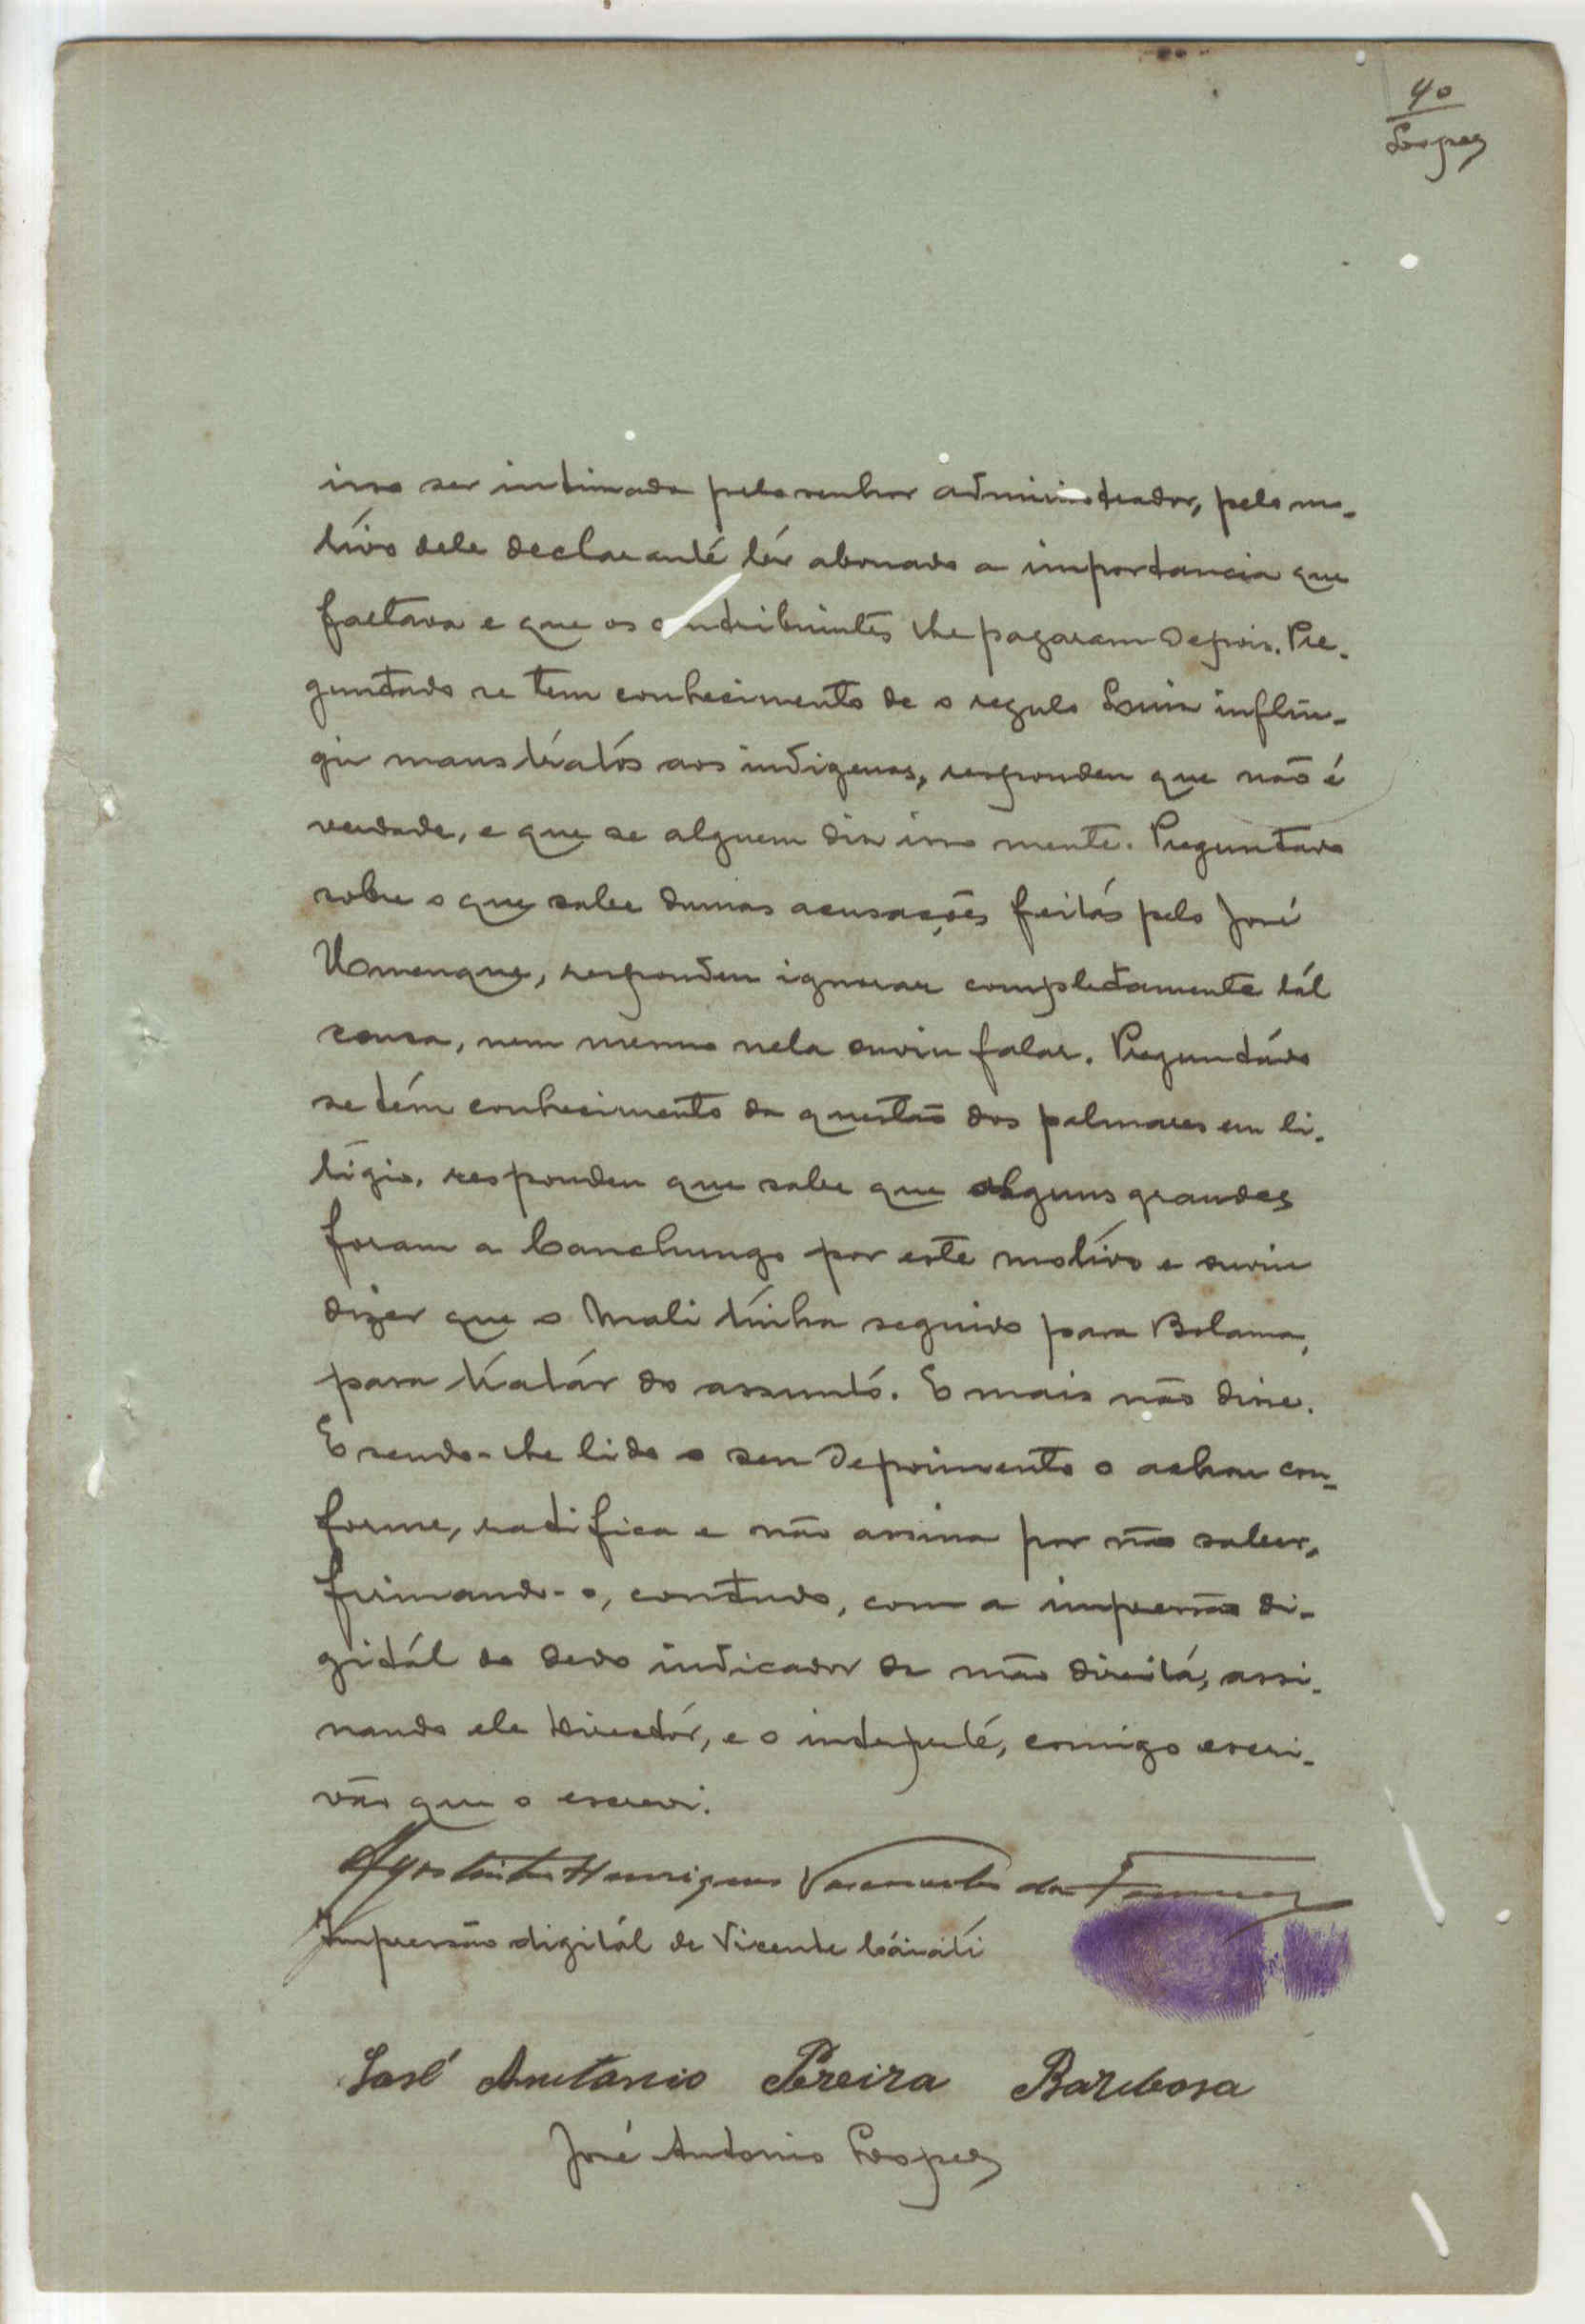 40
Lopes
isso ser intimado pelo senhor administrador, pelo mo-
tivo dele declarante têr abonado a importancia que
faltava e que os contribuintes lhe pagaram depois. Pre-
guntado se tem conhecimento de o regulo Luiz inflin-
gir maus tratos aos indigenas, respondeu que não é
verdade, e que se alguem diz isso mente. Preguntado
sobre o que sabe dumas acusações feitas pelo José
respondeu ignorar completamente tál
cousa, nem mesmo nela ouviu falar. Preguntado
se tém conhecimento da questão dos palmares em li-
tigio, respondeu que sabe que alguns grandes
foram a Canchungo por este motivo e ouviu
dizer que o Mali tinha seguido para Bolama,
para tratár do assunto. E mais não disse.
E sendo-lhe lido o seu depoimento o achou con-
forme, ratifica e não assina por não saber,
firmando-o, contudo, com a impressão di-
gitál do dedo indicador da mão direita, assi-
nando ele Director, e o interprete, comigo escri-
vão que o escrevi.
Agostinho Henriques Vasconcelos da Fonseca
Impressão digitál de Vicente
José Antonio Pereira Barbosa
José Antonio Lopes